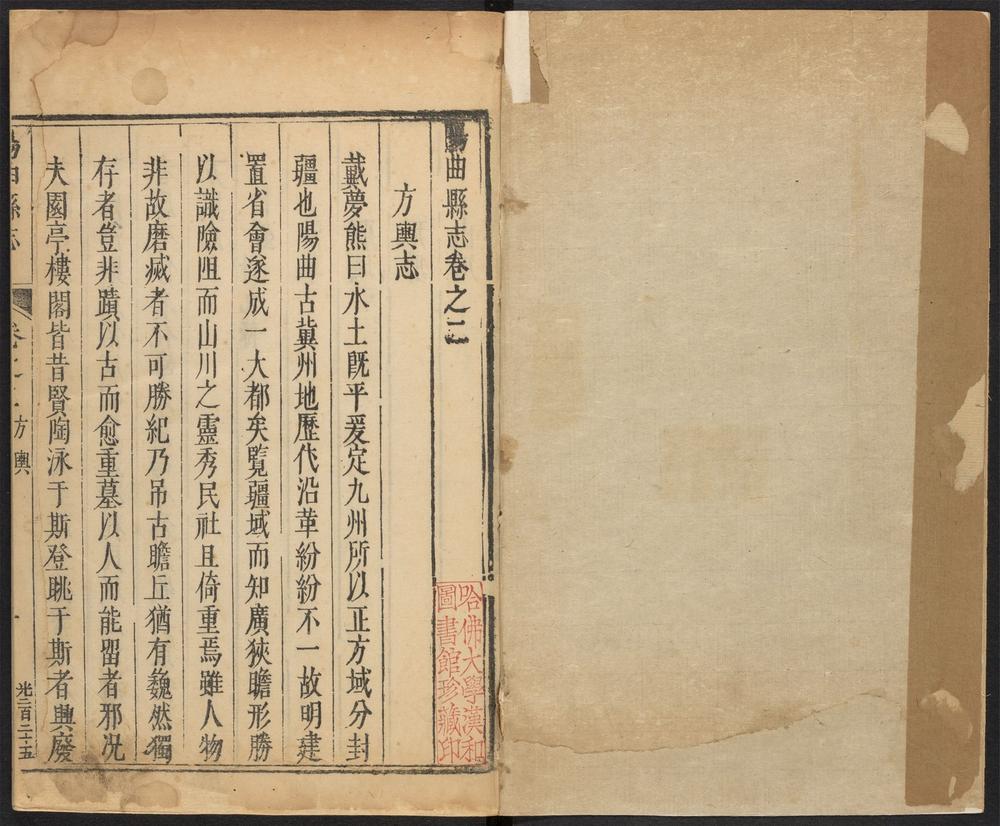 陽曲縣志卷之二
方輿志
戴夢熊曰水土既平爰定九州所以正方域分封
疆也陽曲古冀州地歷代沿革紛紛不一故明建
置省會遂成一大都矣覽疆域而知廣狹瞻形勝
以識險阻而山川之靈秀民社且倚重焉雖人物
非故磨滅者不可勝紀乃吊古瞻丘猶有巍然獨
存者豈非蹟以古而愈重墓以人而能畱者邪况
夫園亭樓閣皆昔賢陶泳于斯登眺于斯者興廢
陽曲縣志
卷之二
方輿
光二百二十五
哈佛大學漢和
圖書館珍藏印